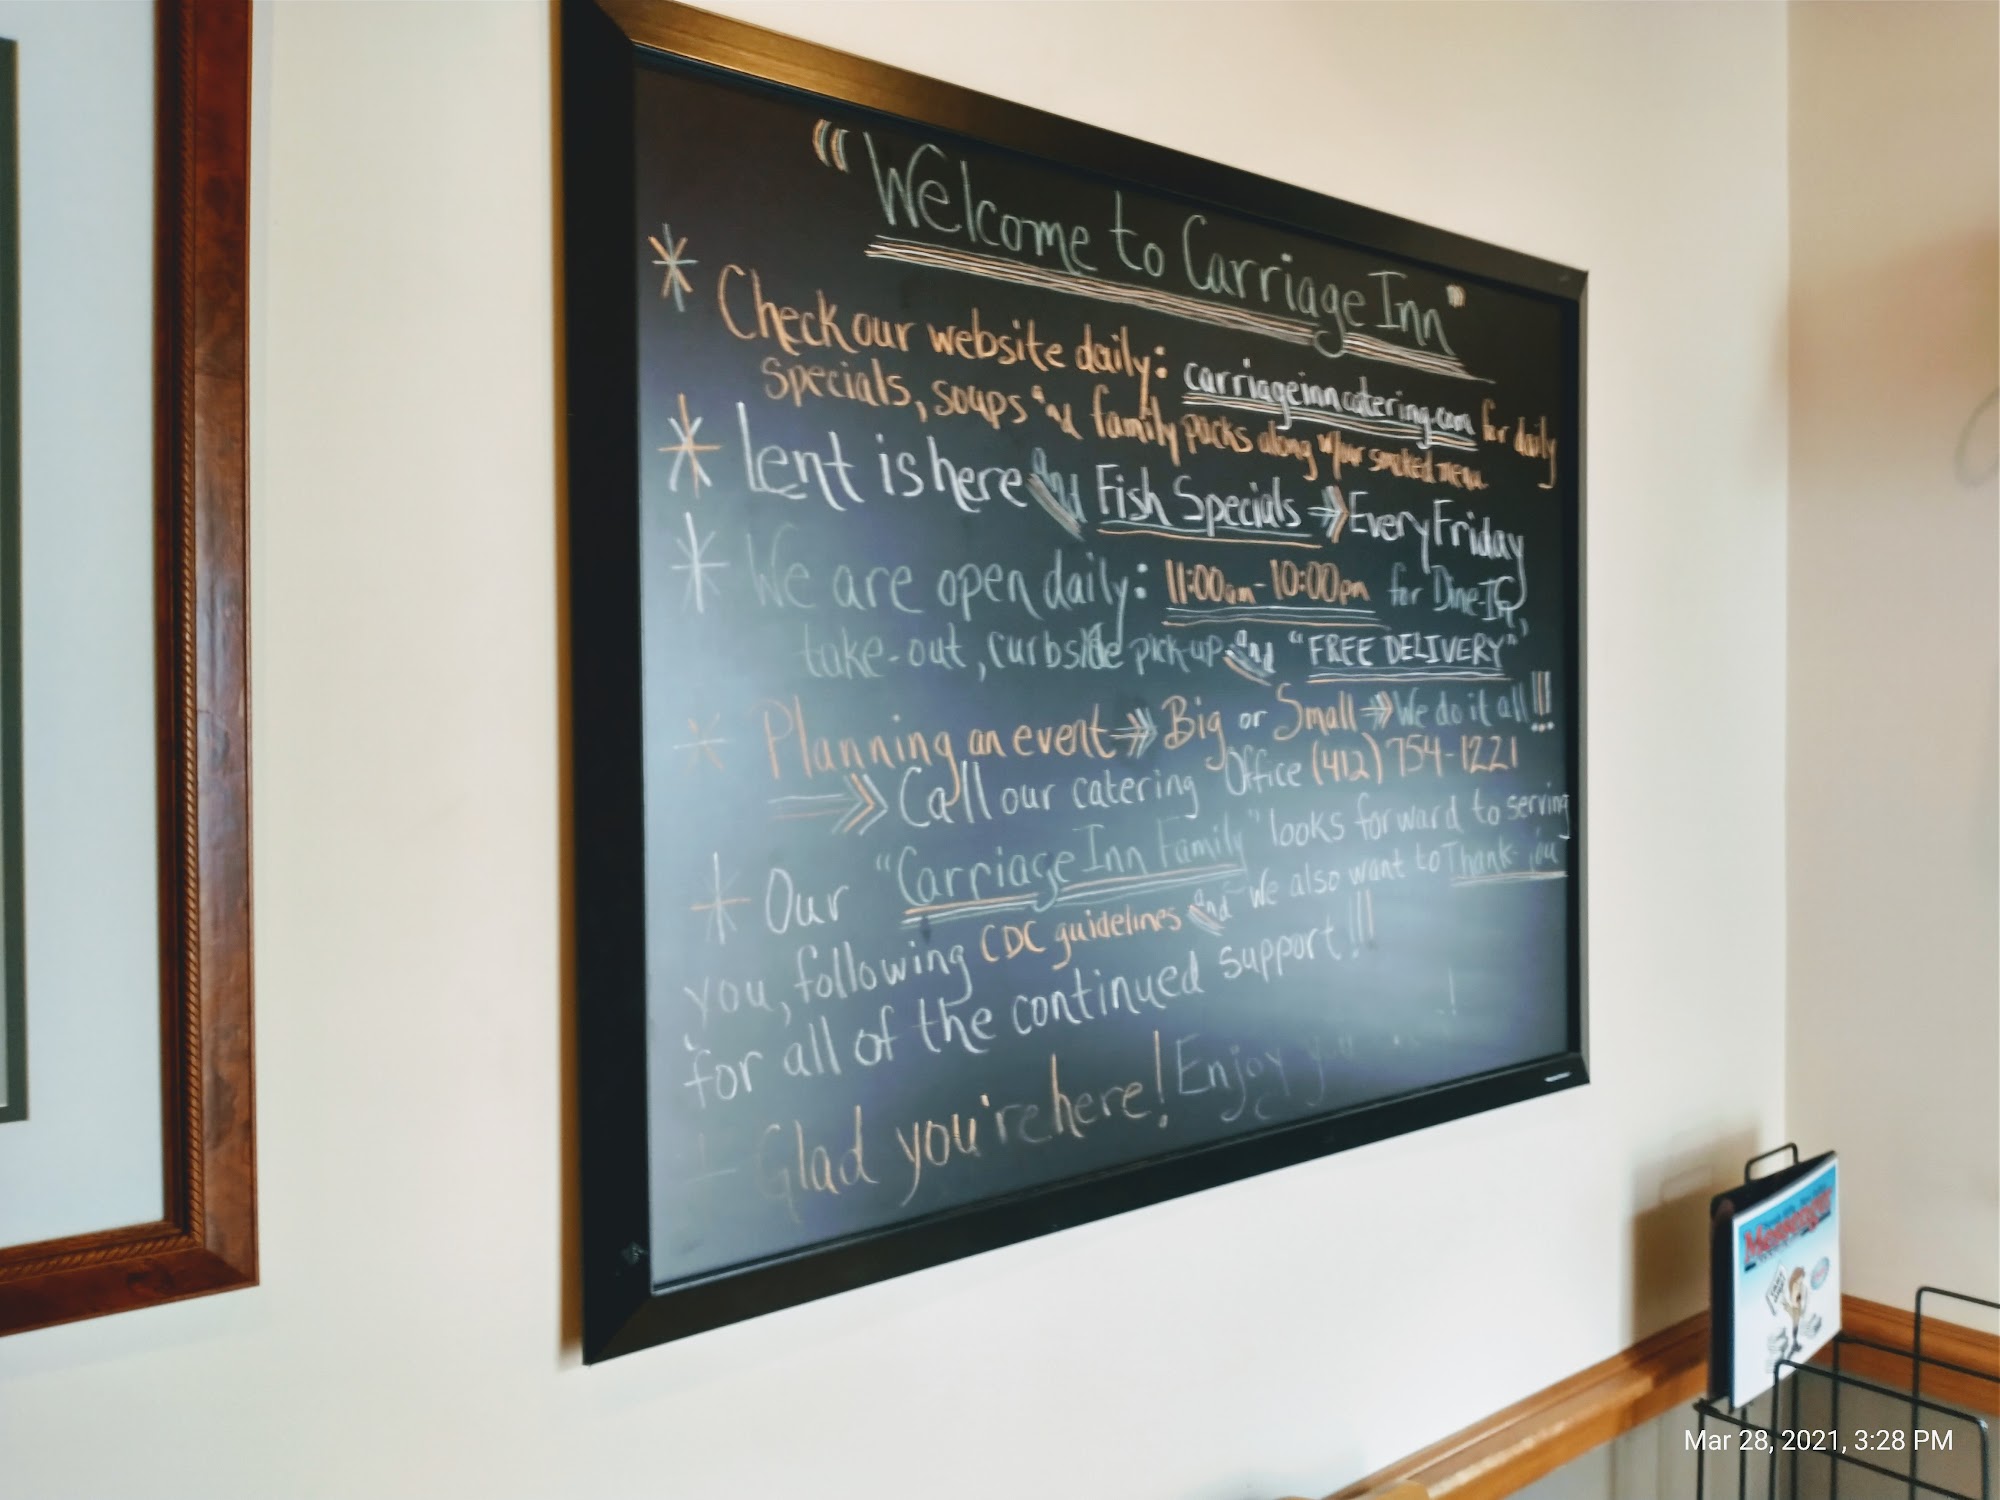 "Welcome to Carriage Inn"
* Check our website daily: carriageinncatering.com for daily
specials, soups and family packs along w/our smoked menu
* Lent is here and Fish Specials → Every Friday
* We are open daily: 11:00am - 10:00pm for Dine-In,
take-out, curbside pick-up and "FREE DELIVERY"
* Planning an event → Big or Small → We do it all!!!
→ Call our catering Office (412) 754-1221
* Our "Carriage Inn Family" looks forward to serving
you, following CDC guidelines and We also want to Thank-you
for all of the continued support!!!
Glad you're here! Enjoy
Messenger
Mar 28, 2021, 3:28 PM